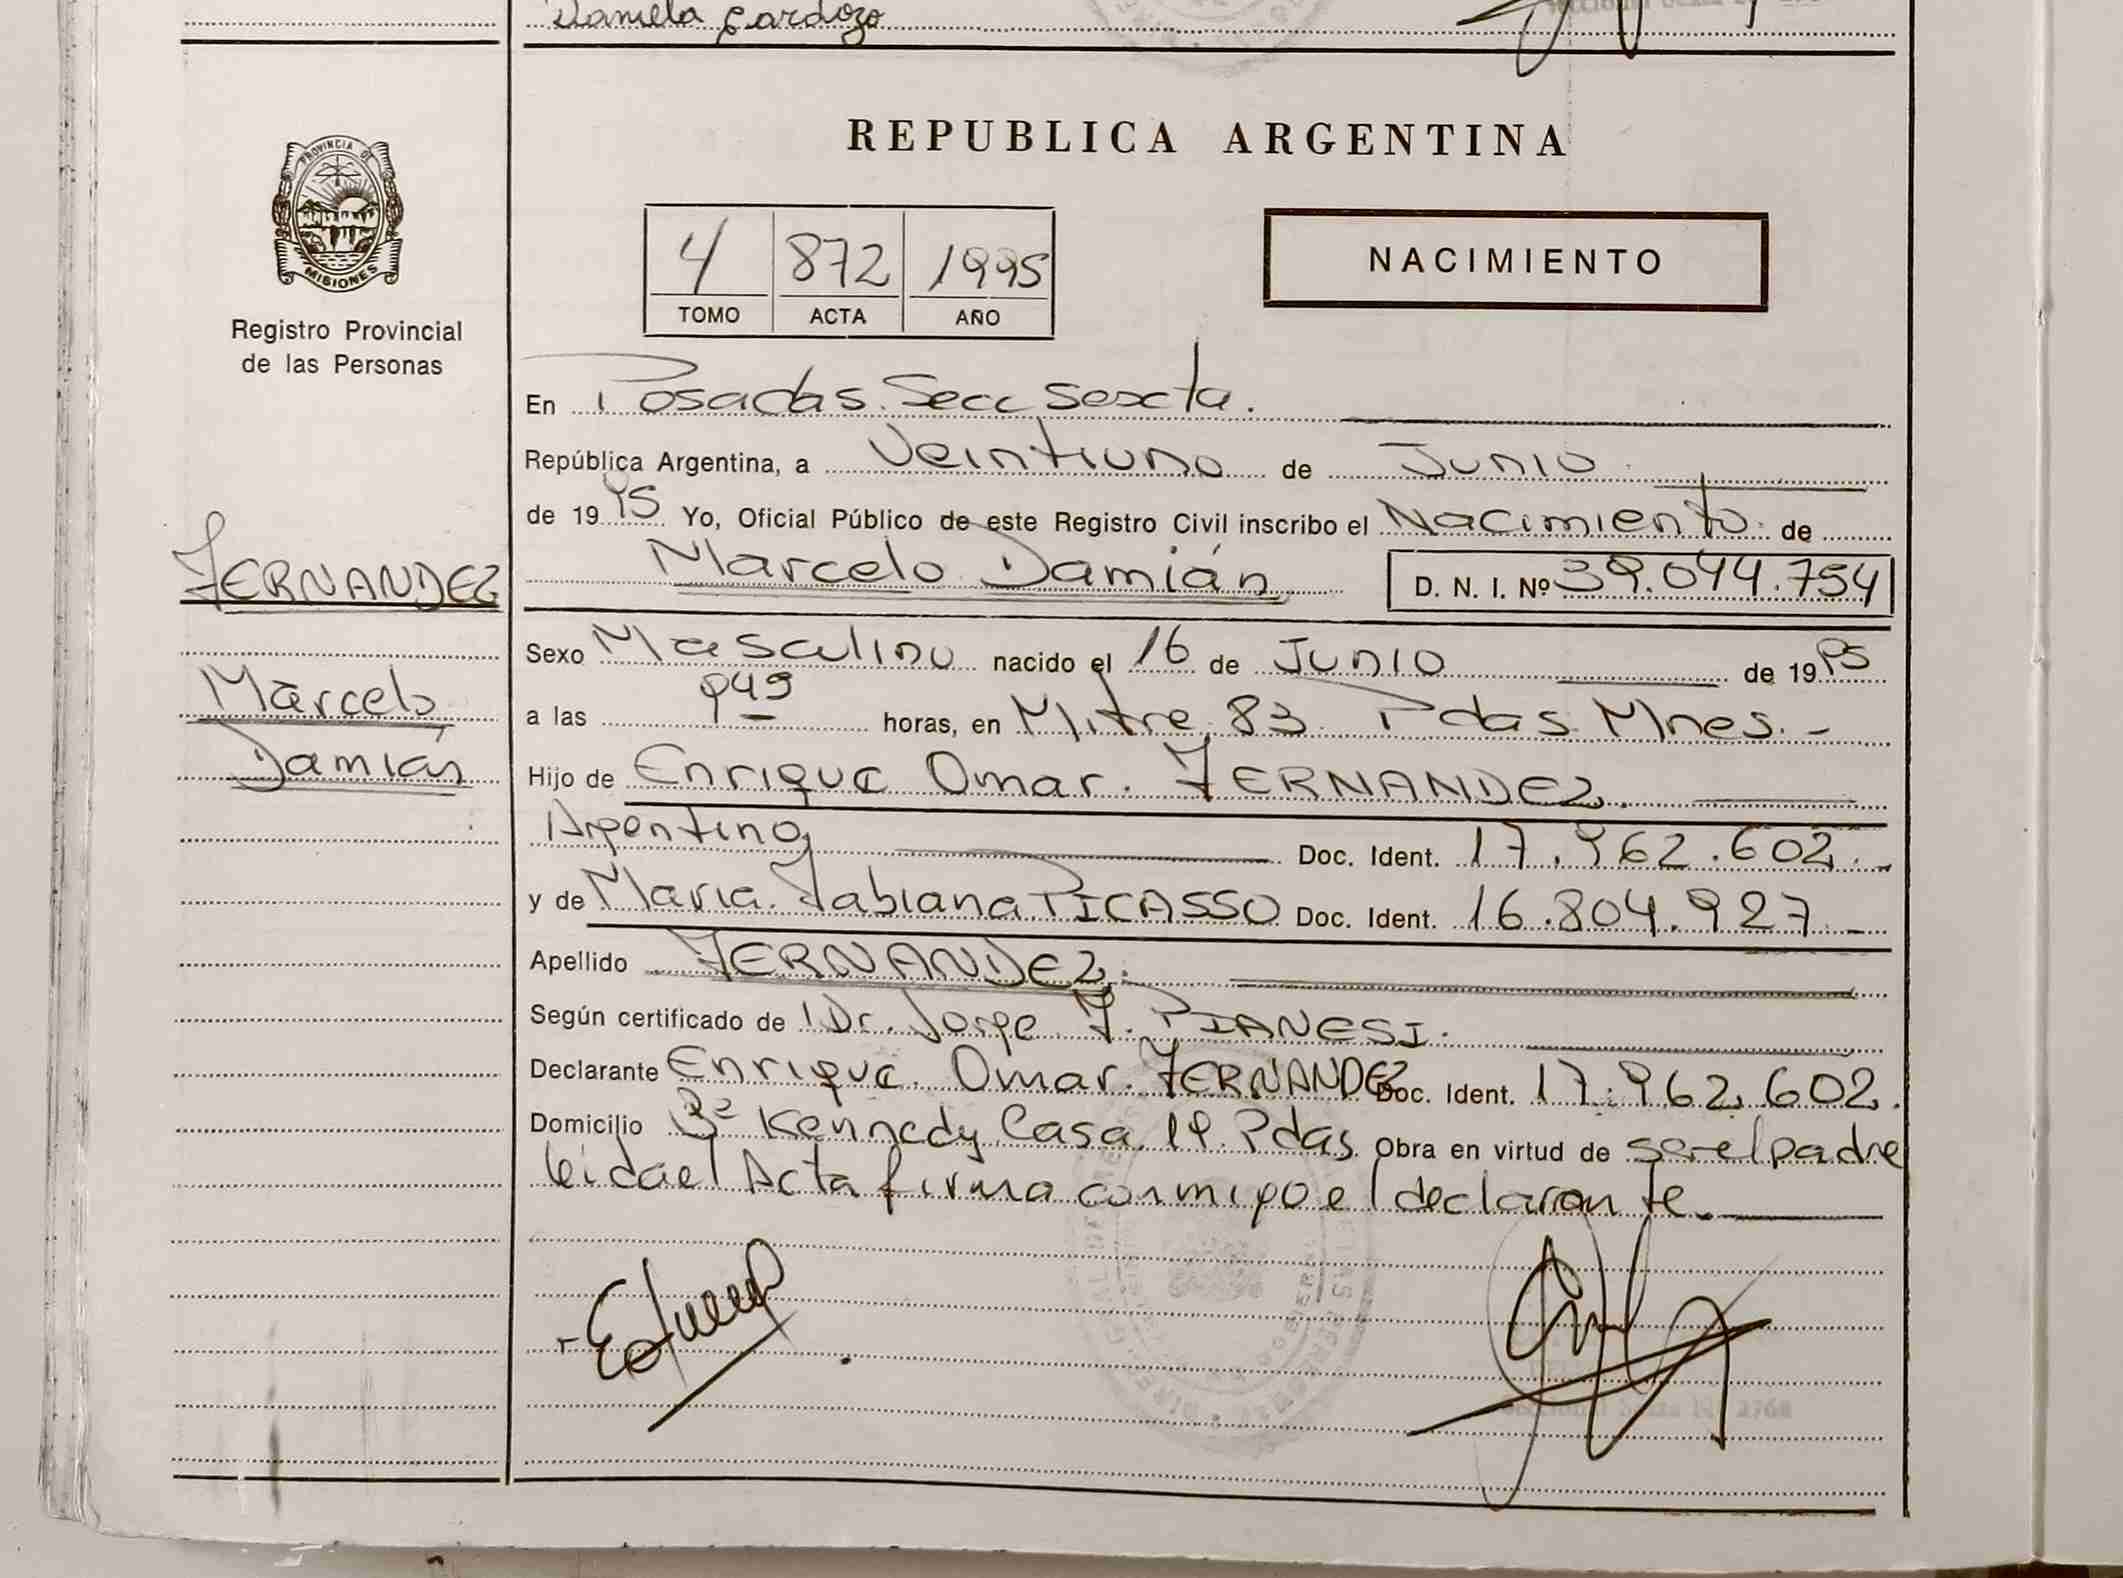 Daniela Cardozo
PROVINCIA DE
MISIONES
Registro Provincial
de las Personas
REPUBLICA ARGENTINA
4 872 1995
TOMO ACTA AÑO
NACIMIENTO
En Posadas. Secc Sexta.
República Argentina, a Veintiuno de Junio
de 1995 Yo, Oficial Público de este Registro Civil inscribo el Nacimiento de
FERNANDEZ
Marcelo Damián D. N. I. Nº 39.044.754
Sexo Masculino nacido el 16 de Junio de 1995
Marcelo
Damián
a las 949 horas, en Mitre 83 Pdas Mnes. -
Hijo de Enrique Omar. FERNANDEZ.
Argentino Doc. Ident. 17.962.602.-
y de Maria Fabiana PICASSO Doc. Ident. 16.804.927.-
Apellido FERNANDEZ.
Según certificado de Dr. Jorge F. PIANESI.
Declarante Enrique Omar. FERNANDEZ Doc. Ident. 17.962.602.
Domicilio Kennedy Casa 19. Pdas. Obra en virtud de ser el padre
leida el Acta firma conmigo el declarante.